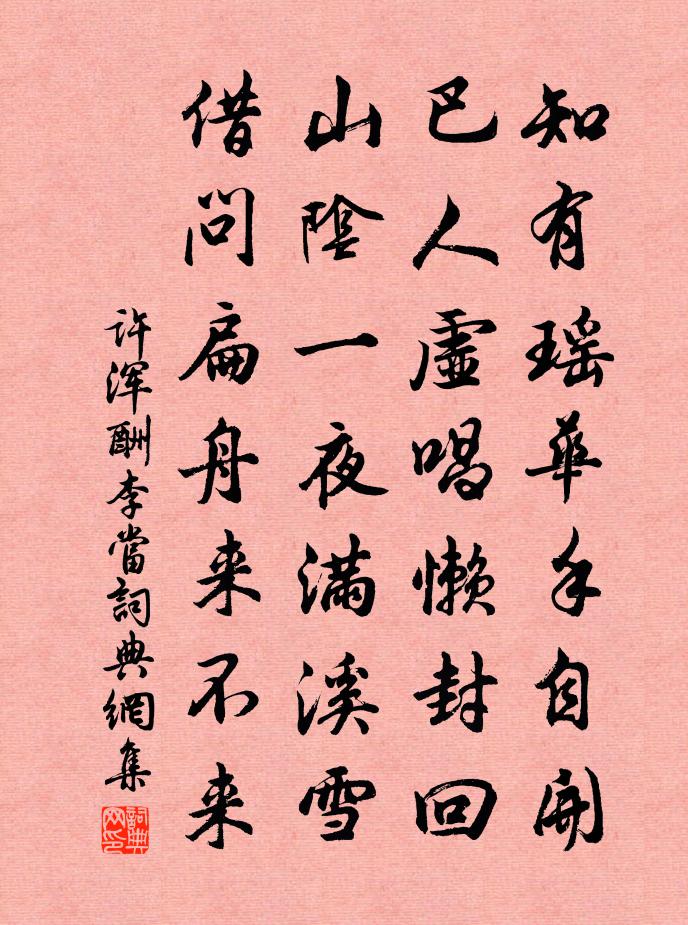 知有瑶華手自開
巴人虛唱懶封回
山陰一夜满溪雪
借問扁舟来不来
许浑酬李當詞典網集
詞典网印